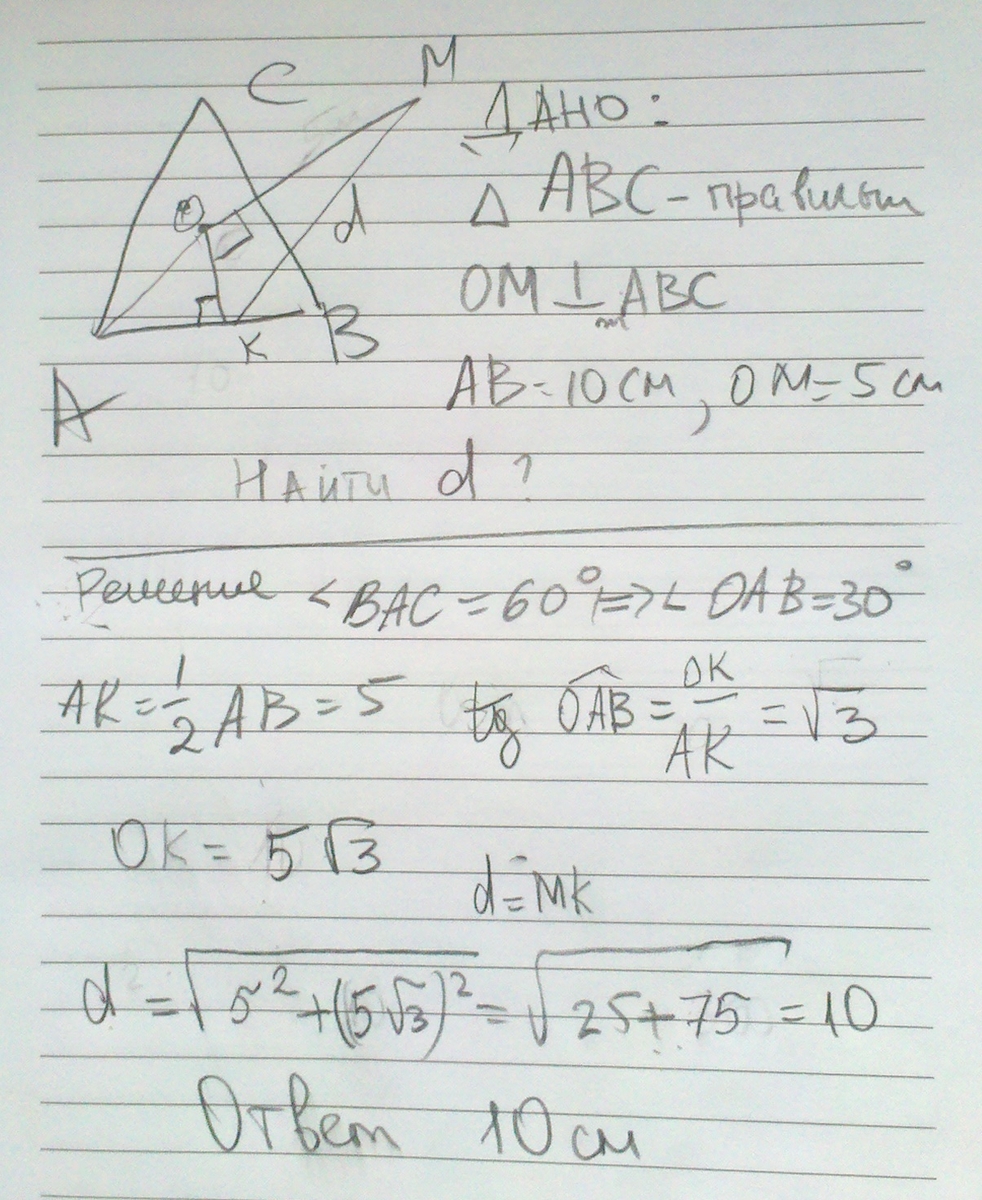 C M
ДАНО:
O d
△ ABC - правильн
OM ⊥ ABC
K B
A
AB = 10 см, OM = 5 см
НАЙТИ d ?
Решение < BAC = 60° => < OAB = 30°
AK = 1/2 AB = 5 tg OAB = OK/AK = √3
OK = 5√3
d = MK
d = √(5² + (5√3)²) = √(25 + 75) = 10
Ответ 10 см